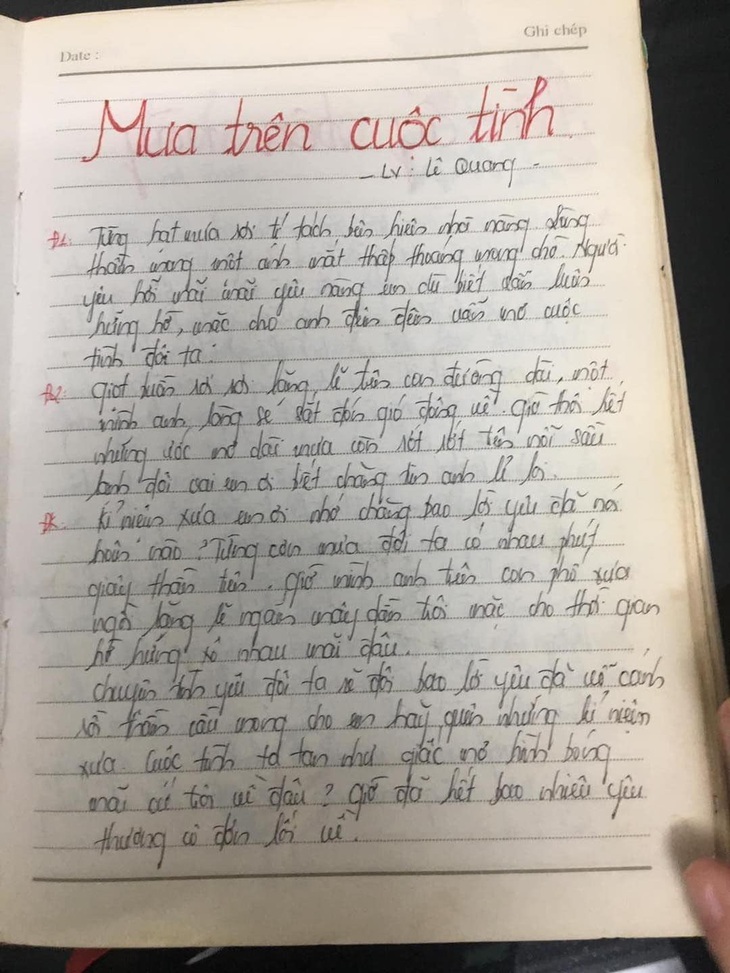 Ghi chép
Date :
Mưa trên cuộc tình
- LV : Lê Quang -
Đ1: Từng hạt mưa rơi tí tách bên hiên nhà nàng đừng
thầm mong một ánh mắt thấp thoáng mong chờ. Người
yêu hỡi mãi mãi yêu nàng em dù biết dẫn luôn
hững hờ, mặc cho anh đêm đêm vẫn mơ cuộc
tình đôi ta.
Đ2: Giọt buồn rơi rơi lặng lẽ trên con đường dài, một
mình anh, lòng se sắt đón gió đông về. Giờ thôi hết
những ước mơ dài mưa còn rớt rớt trên nỗi sầu
anh đời sai em ơi biết chăng tim anh lẻ loi.
ĐK: Kỉ niệm xưa em ơi nhớ chăng bao lời yêu đã nói
hôm nào? Từng cơn mưa đôi ta có nhau phút
giây thần tiên. Giờ mình anh trên con phố xưa
ngồi lặng lẽ ngắm mây dần trôi mặc cho thời gian
hờ hững xô nhau mãi đâu.
Chuyện tình yêu đôi ta vỡ đôi bao lời yêu đã vỗ cánh
rồi thầm cầu mong cho em hãy quên những kỉ niệm
xưa. Cuộc tình ta tan như giấc mơ hình bóng
mãi cứ trôi về đâu? Giờ đã hết bao nhiêu yêu
thương cô đơn lối về.